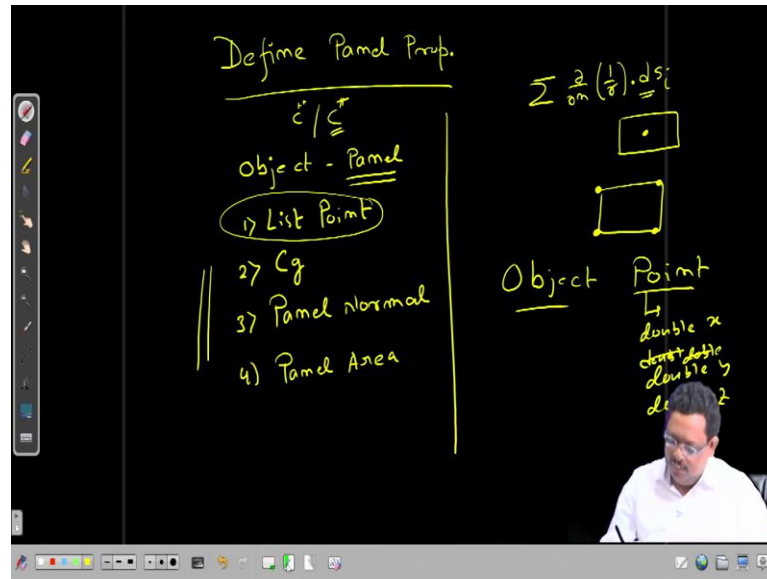 Define Panel Prop.
c++ / c#
Object - Panel
1) List Point
2) Cg
3) Panel Normal
4) Panel Area
∑ ∂/∂n (1/r) . ds i
Object Point
double x
double y
z